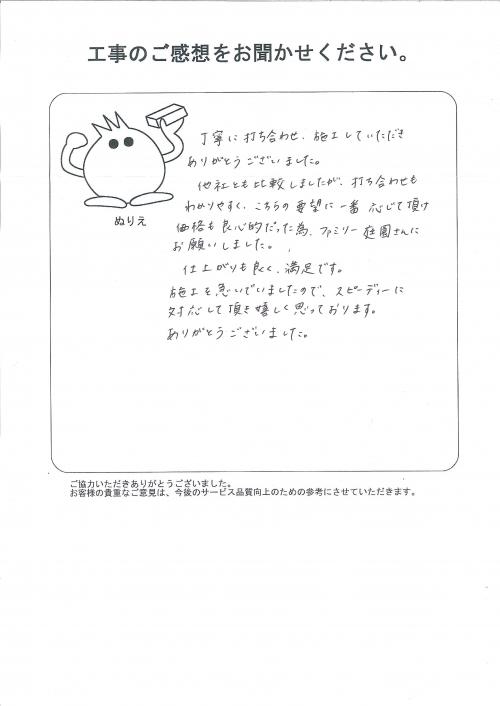 工事のご感想をお聞かせください。
丁寧に打ち合わせ、施工していただき
ありがとうございました。
他社とも比較しましたが、打ち合わせも
わかりやすく、こちらの要望に一番応じて頂け
価格も良心的だった為、ファミリー庭園さんに
お願いしました。
仕上がりも良く、満足です。
施工を急いでいましたので、スピーディーに
対応して頂き嬉しく思っております。
ありがとうございました。
ぬりえ
ご協力いただきありがとうございました。
お客様の貴重なご意見は、今後のサービス品質向上のための参考にさせていただきます。